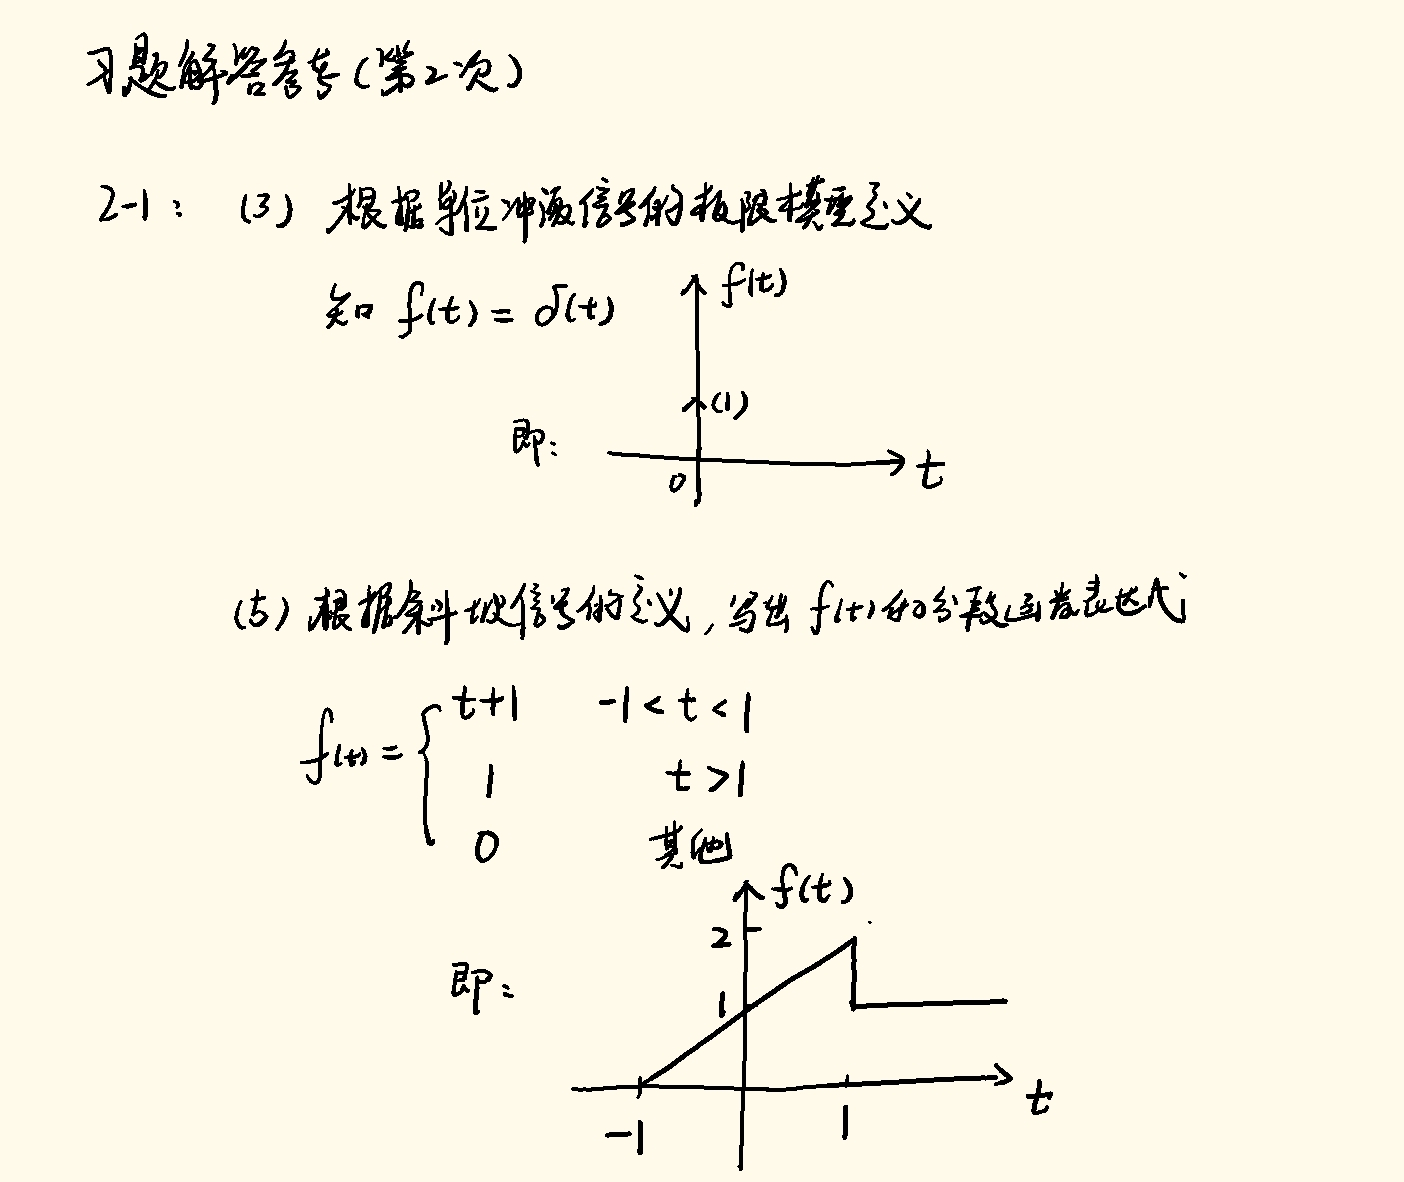 习题解答参考(第2次)
2-1: (3) 根据单位冲激信号的极限模型定义
知 f(t) = δ(t)
f(t)
(1)
即:
0
t
(5) 根据斜坡信号的定义, 写出 f(t) 的分段函数表达式
f(t) = { t+1 -1 < t < 1
1 t > 1
0 其他
f(t)
2
即:
1
t
-1
1